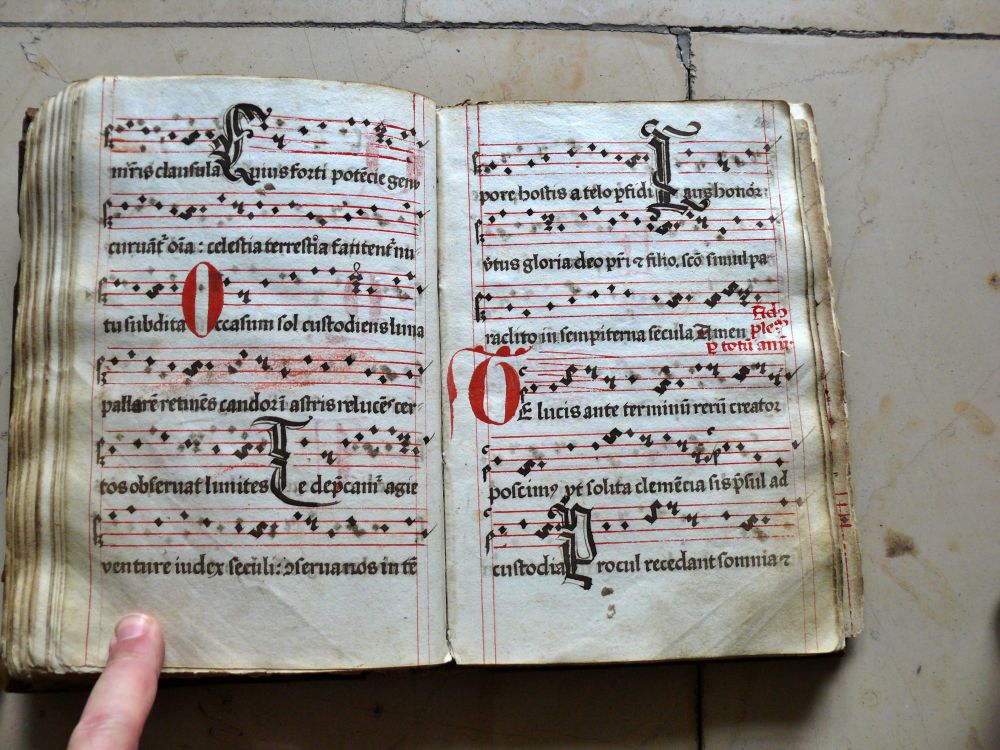 mr̄is clausula Cuius forti potēcie genu
curuāt᷑ oīa : celestia terrestia fatent᷑ nu
tu subdita Occasum sol custodiens luna
pallorē retinēs candorē astris relucēs cer
tos obseruat lunites Te dep̄cam᷑ agie
venture iudex seculi : ɔserua nos in tē
pore hostis a telo p̄fidi Laus honor
v̄tus gloria deo pr̄i ⁊ filio. scō simul pa
raclito in sempiterna secula Amen
p totū annū
TE lucis ante terminū rerū creator
poscimꝰ vt solita clemēcia sis p̄sul ad
custodia Procul recedant somnia ⁊